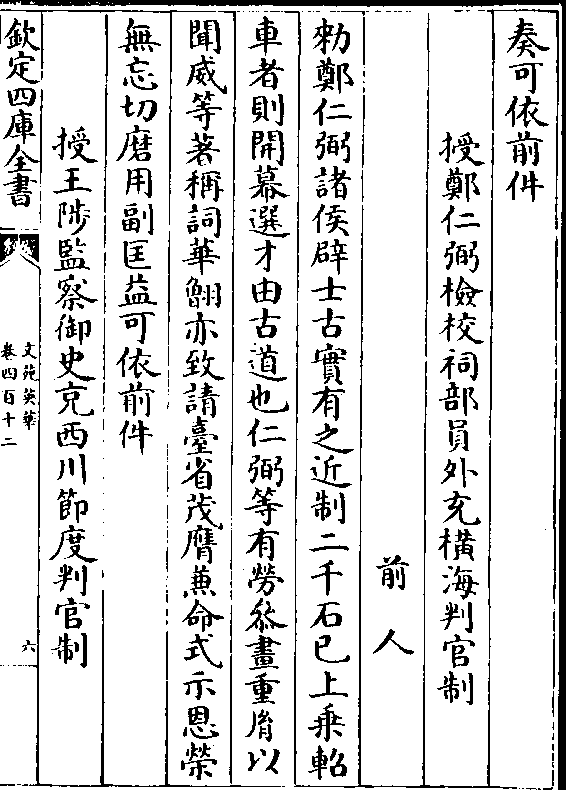 奏可依前件
授鄭仁弼檢校祠部員外充橫海判官制
前人
勑鄭仁弼諸侯辟士古實有之近制二千石已上乗軺
車者則開幕選才由古道也仁弼等有勞叅畫重胤以
聞威等著稱詞華翺亦致請臺省茂膺兼命式示恩榮
無忘切磨用副匡益可依前件
授王陟監察御史充西川節度判官制
欽定四庫全書
文苑英華
卷四百十二
六